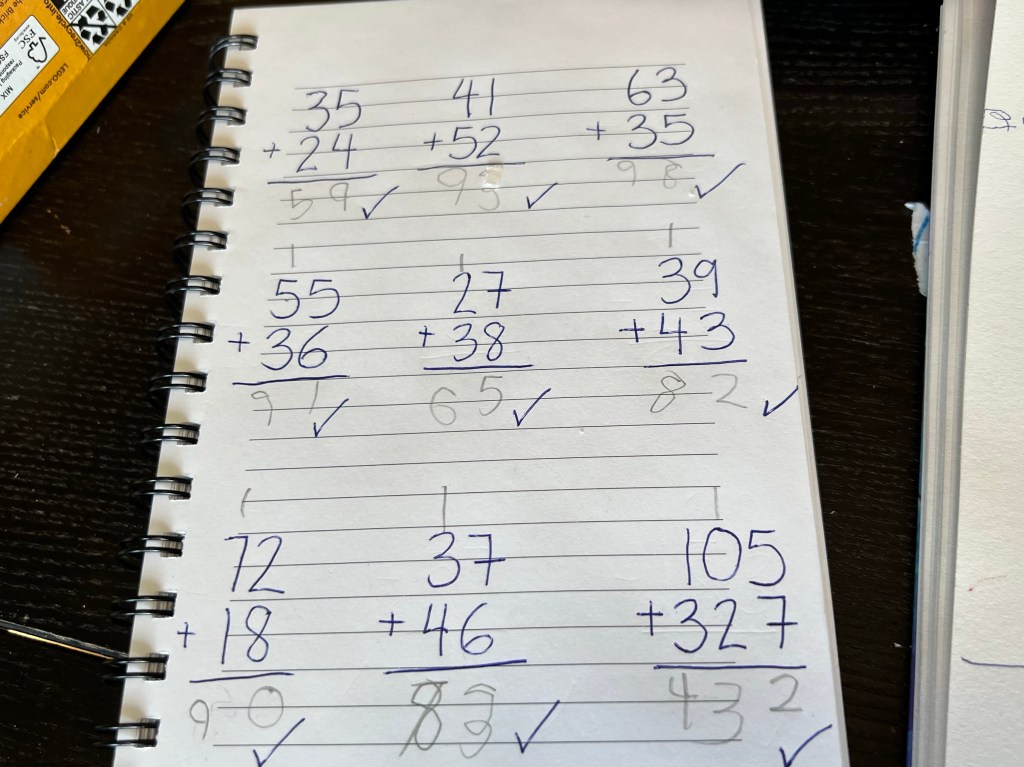 35 41 63
+24 +52 +35
59 93 98
1 1 1
55 27 39
+36 +38 +43
91 65 82
1 1 1
72 37 105
+18 +46 +327
90 83 432
LEGO.com/service
FSC
MIX